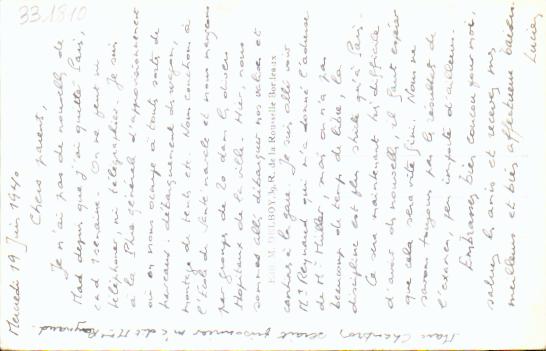 33.1810
Mercredi 19 Juin 1940
Chers parents,
Je n'ai pas de nouvelles de
Mad depuis que j'ai quitté Paris,
c a d 1 semaine. On ne peut ni
téléphoner, ni télégraphier. Je suis
à la Pha Générale d'approvisionnement
où on nous occupe à toutes sortes de
travaux : débarquement de wagons,
montage de tentes etc. Nous couchons à
l'Ecole de Santé navale et nous mangeons
par groupes de 20 dans les divers
Hôpitaux de la ville. Hier, nous
sommes allés débarquer nos valises et
cantines à la gare. Je suis allé voir
Mr Reynaud qui m'a donné l'adresse
de Mr Muller, mais on n'a pas
beaucoup de temps de libre, la
discipline est plus stricte qu'à Paris.
Ce sera maintenant très difficile
d'avoir des nouvelles, il faut espérer
que cela sera vite fini. Nous ne
savons toujours pas le résultat de
l'examen, peu importe d'ailleurs.
Embrassez bien coucou pour moi,
saluez les amis et recevez mes
meilleurs et bien affectueux baisers.
Lucien
Marc Chambon, serait prisonnier m'a dit Mme Reynaud.
Edit. M. DELBOY, R. de la Rousselle Bordeaux